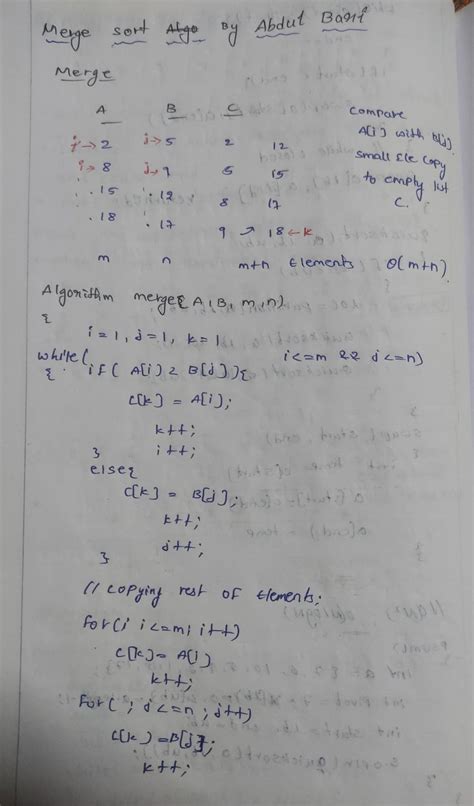 Merge sort Algo By Abdul Bari
Merge
A B C
i→ 2 j→ 5 2 12
i→ 8 j→ 9 5 15
. 15 . 12 8 17
. 18 . 17 9 → 18 ←k
m n m+n Elements θ(m+n)
compare
A[i] with B[j]
small Ele copy
to empty list
C.
Algorithm merge( A, B, m, n)
{
i = 1, j = 1, k = 1
while( i<=m && j<=n)
{ if( A[i] < B[j] ){
C[k] = A[i];
k++;
i++;
}
else{
C[k] = B[j];
k++;
j++;
}
// copying rest of Elements;
for(; i<=m; i++)
C[k] = A[i]
k++;
for( ; j<=n ; j++)
C[k] = B[j];
k++;